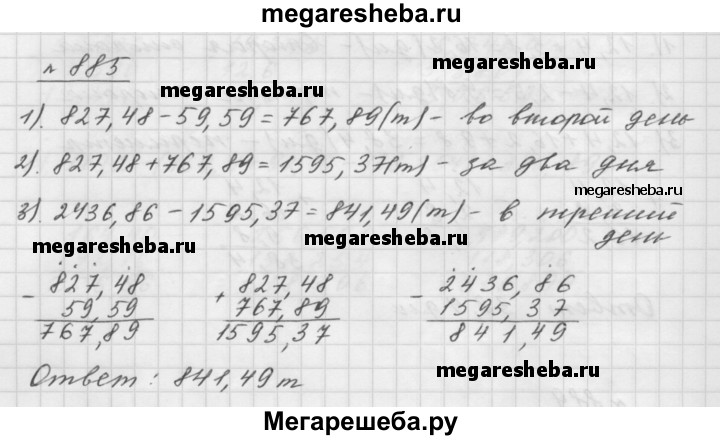 megaresheba.ru
№ 885
megaresheba.ru
megaresheba.ru
1). 827,48 - 59,59 = 767,89(т) - во второй день
2). 827,48 + 767,89 = 1595,37(т) - за два дня
megaresheba.ru
3). 2436,86 - 1595,37 = 841,49(т) - в третий
день
megaresheba.ru
megaresheba.ru
- 827,48 + 827,48 - 2436,86
59,59 767,89 1595,37
767,89 1595,37 841,49
Ответ: 841,49 т
megaresheba.ru
megaresheba.ru
Мегарешеба.ру